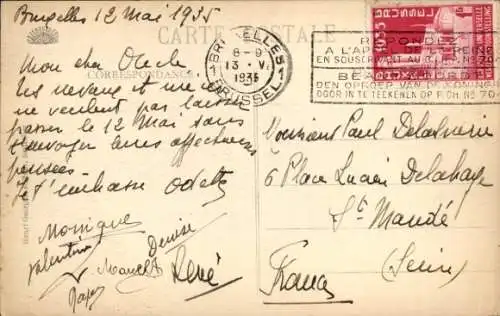 Bruxelles 12 Mai 1935
CARTE POSTALE
CORRESPONDANCE
Mon cher Oncle
Les neveux et une
ne veulent pas laisser
passer le 12 Mai sans
t'envoyer leurs affectueuses
pensées.
Je t'embrasse Odette
Monique
Valentine
Denise
Marcel
René
BRUXELLES 1
8-9
13 V
1935
BRUSSEL
1935 BRUSSEL
REPONDEZ
A L'APPEL DE LA REINE
EN SOUSCRIVANT AU
DEN OPROEP VAN DE KONINGIN
DOOR IN TE TEEKENEN OP P.C.H. Nº 70
Monsieur Paul
6 Place Lucien Delahaye
St Mandé
(Seine)
France